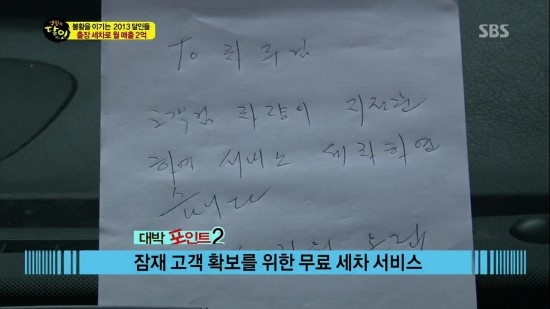 생활의 달인
불황을 이기는 2013 달인들
출장 세차로 월 매출 2억
SBS
To
고객님 차량이 지저분
하여 서비스 세차하였
습니다
대박 포인트2
잠재 고객 확보를 위한 무료 세차 서비스